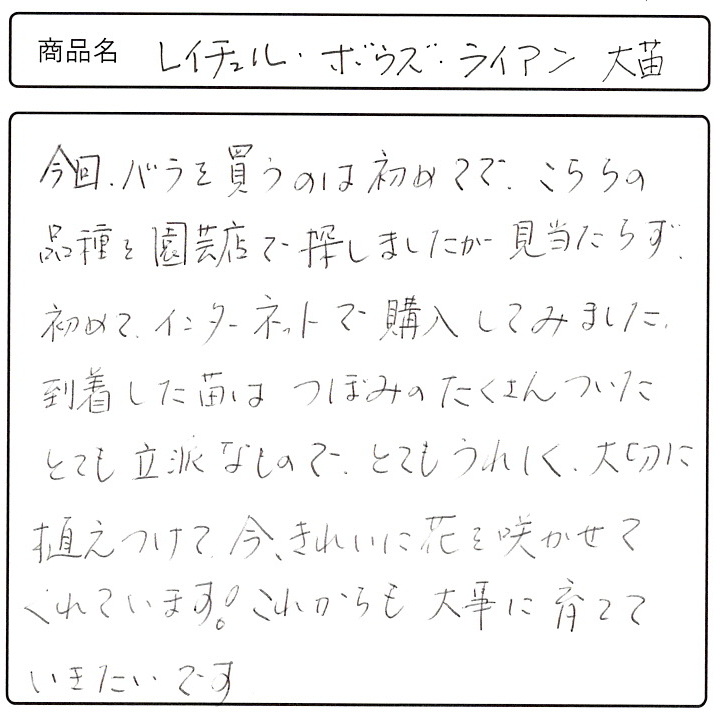 商品名 レイチェル・ボウズ・ライアン 大苗
今回、バラを買うのは初めてで、こちらの
品種を園芸店で探しましたが見当たらず、
初めて、インターネットで購入してみました。
到着した苗はつぼみのたくさんついた
とても立派なもので、とてもうれしく、大切に
植えつけて、今、きれいに花を咲かせて
くれています!これからも大事に育てて
いきたいです